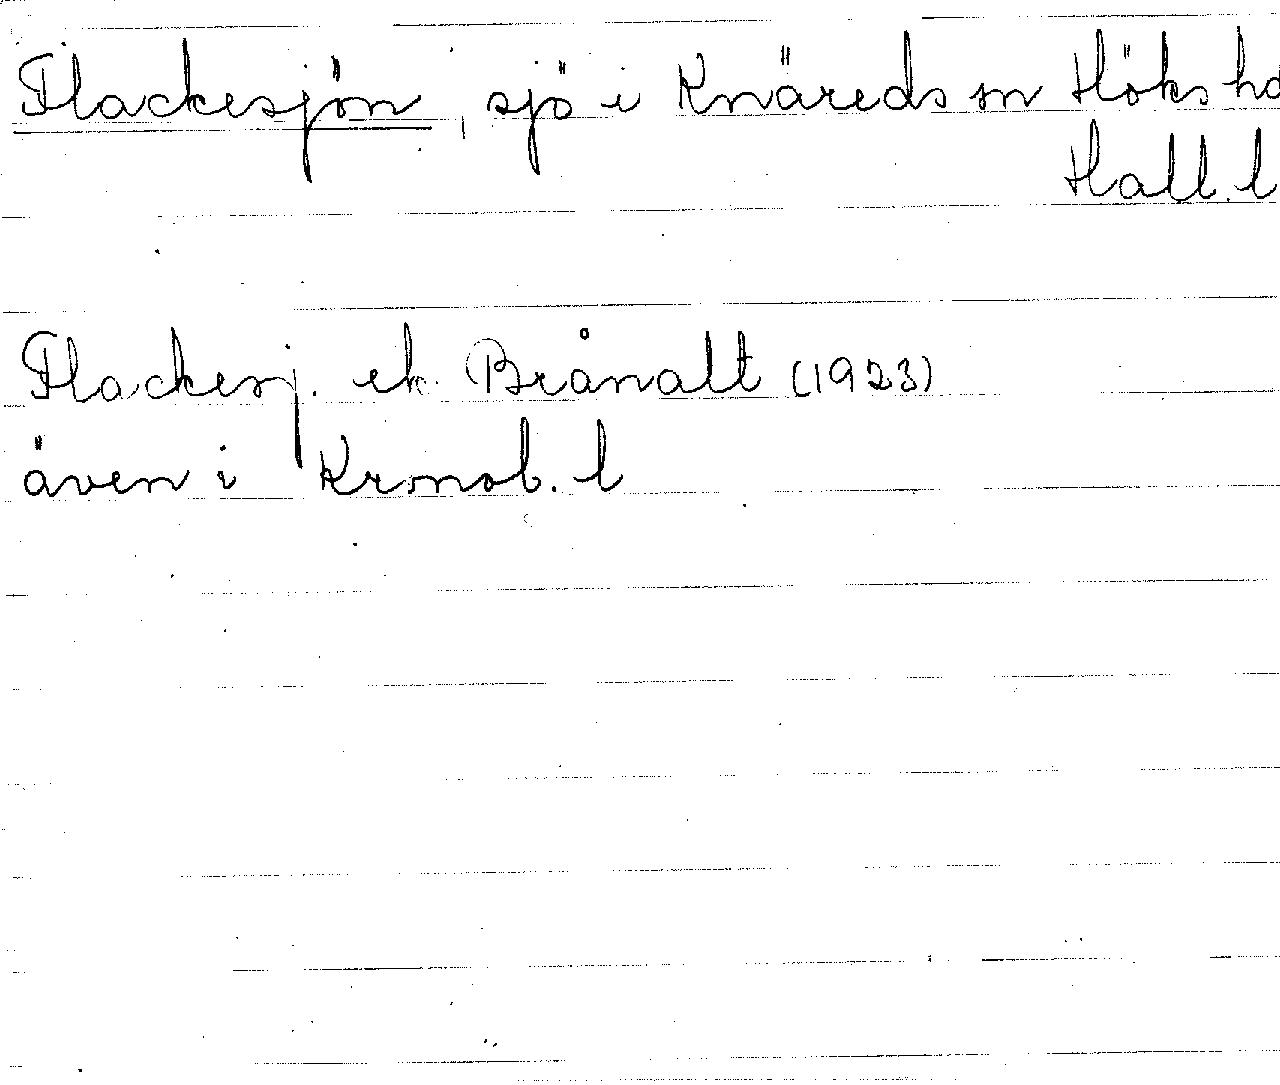 Flackesjön, sjö i Knäreds sn Höks hd
Hall. l
Flackesj. ek. Brånalt (1923)
även i Kronob. l